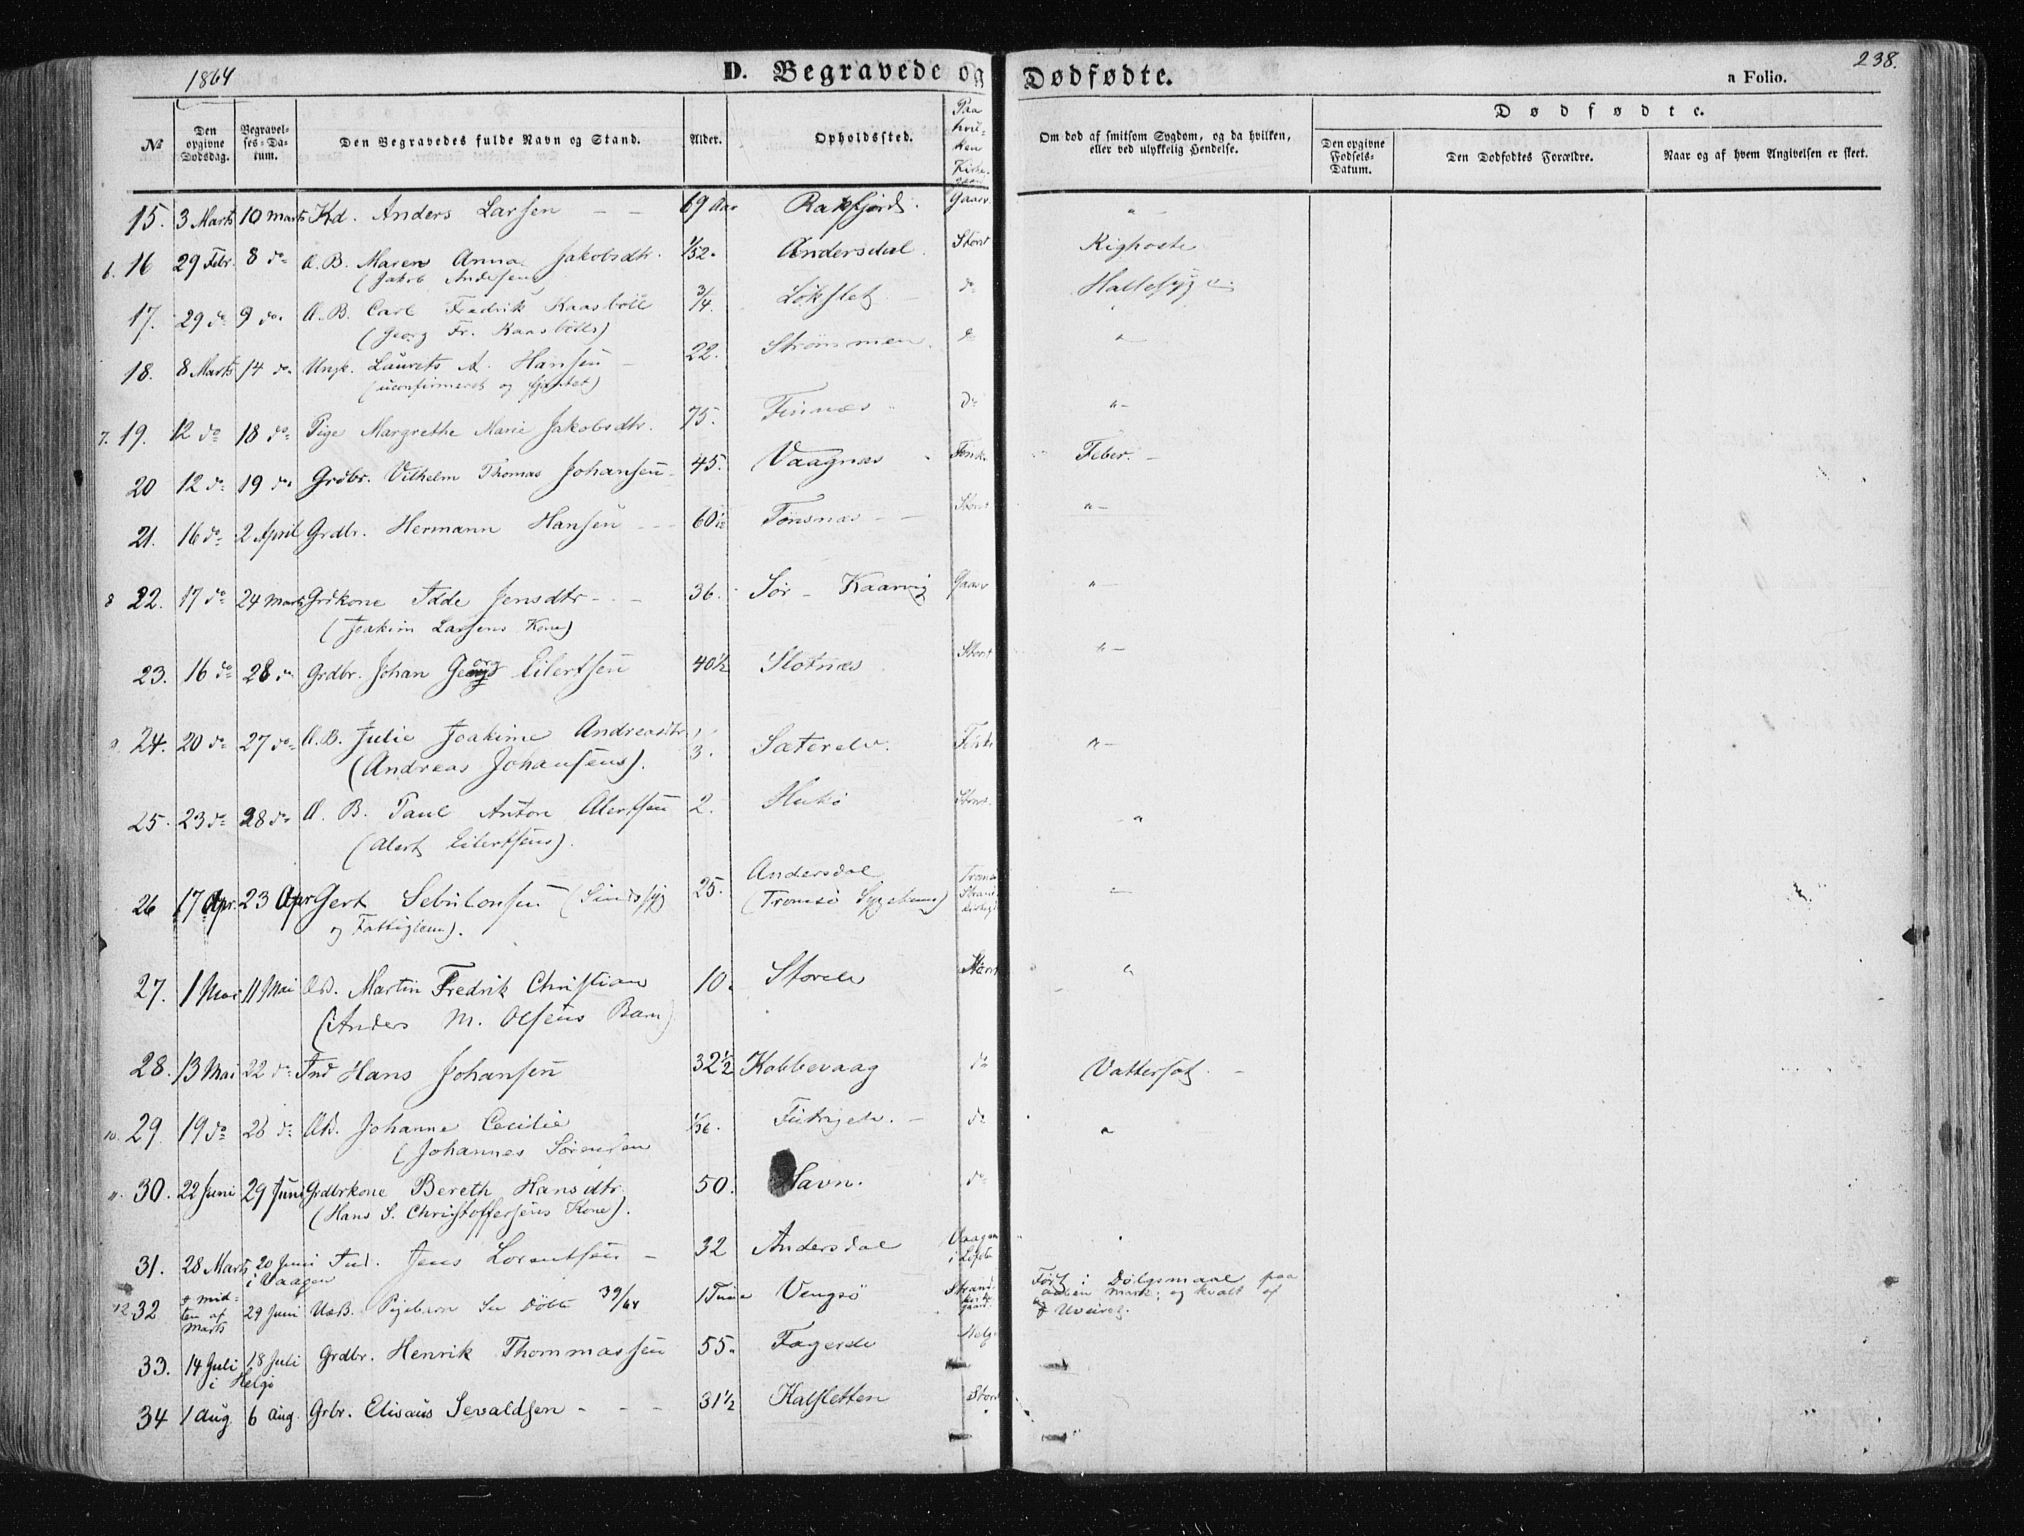 1864
D. Begravede og Dødfødte.
238.
a Folio.
№
Den opgivne Dødsdag.
Begravelses-Datum.
Den Begravedes fulde Navn og Stand.
Alder.
Opholdssted.
Paa hvilken Kirkegaard
Om død af smitsom Sygdom, og da hvilken, eller ved ulykkelig Hendelse.
Dødfødte.
Den opgivne Fødsels-Datum.
Den Dødfødtes Forældre.
Naar og af hvem Angivelsen er skeet.
15. 3 Marts 10 Marts Kd. Anders Larsen - - 69 Aar Rakfjord. Gaasv
6. 16 29 Febr. 8 do A. B. Maren Anna Jakobsdtr. 1/52. Andersdal. Stors Kighoste
(Jakob Andersens
17. 29 do 9 do. A. B. Carl Fredrik Kaasbøll 3/4. Løkslet do Halsesyg
(Georg Fr. Kaasbølls)
18. 8 Marts 14 do Ungk. Laurits A. Hansen 22. Strømmen. do "
(uconfirmeret og sjantet)
7. 19. 12 do 18 do Pige Margrethe Marie Jakobsdtr. 75. Finnæs do "-
20 12 do 19 do Grdbr. Vilhelm Thomas Johansen 45. Vaagnæs Feber. -
21. 16 do 2 April Grdbr. Hermann Hansen - - 60 Tønsnæs - - Stors "-
8 22. 17 do 24 Marts Grdkone Idde Jensdtr - - 36. Sør-Kaarvig Gaasv "-
(Joakim Larsens Kone)
23. 16 do 28 do Grdbr. Johan Georg Eilertsen 40 1/2 Slotnæs Stors "-
9. 24. 20 do 27 do A. B. Julie Joakime Andreasdtr 3. Sæterelv. "-
(Andreas Johansens).
25. 23 do 28 do A. B. Paul Anton Alertsen 2. Stors. "
(Alert Eilertsens).
26 17 Apr. 23 Apr Gert Sebulonsen (Sindssyg 25. Andersdal
og Fattiglem). (Tromsø Sygehuus)
27. 1 Mai 11 Mai A.B. Martin Fredrik Christian 10. Storelv "
(Anders M. Olsens Barn)
28. 13 Mai 22 do Ind Hans Johansen 32 1/2 Kobbevaag do Vattersot. -
10. 29. 19 do 26 do A.B. Johanne Cecilie 1/36. do "
(Johannes Sørensen
11. 30. 22 Juni 29 Juni Grdbrkone Bereth Hansdtr. 50. Havn. do
(Hans S. Christoffersens Kone).
31. 28 Marts 20 Juni Ind. Jens Lorentsen - 32 Andersdal
i Vaagen
12. 32 midten af Marts 29 Juni UæB. Pigebarn Vengsø Strandkirkegaard. Født i Dølgsmaal paa aaben mark; og kvalt af Uveiret.
33. 14 Juli 18 Juli Grdbr. Henrik Thommassen 55. Helg
i Helgø
34 1 Aug 6 Aug. Grbr. Elisæus Sevaldsen - - - 31 1/2 Kalsletten Stors